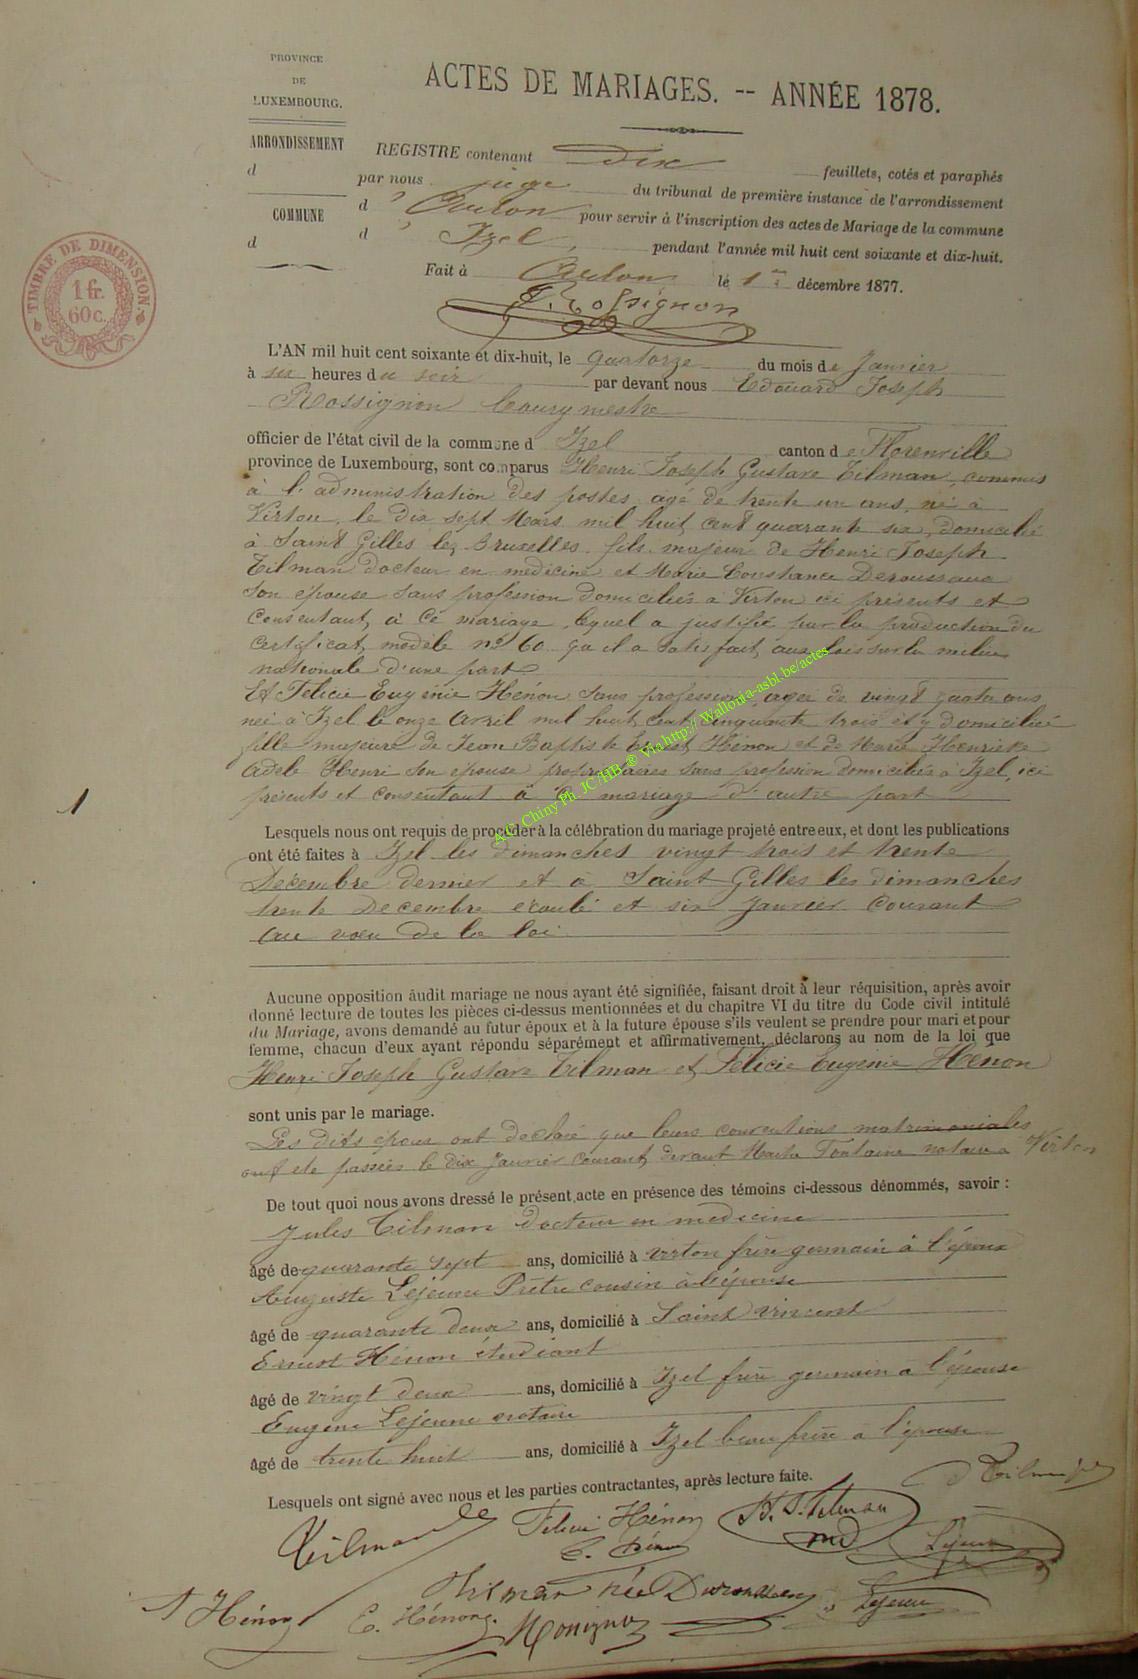 PROVINCE
DE
LUXEMBOURG.
ARRONDISSEMENT
d
COMMUNE
d
TIMBRE DE DIMENSION.
1 fr.
60 c.
ACTES DE MARIAGES. -- ANNÉE 1878.
REGISTRE contenant Dix feuillets, cotés et paraphés
par nous juge du tribunal de première instance de l'arrondissement
d' Arlon pour servir à l'inscription des actes de Mariage de la commune
d' Izel, pendant l'année mil huit cent soixante et dix-huit.
Fait à Arlon le 1er décembre 1877.
Rossignon
L'AN mil huit cent soixante et dix-huit, le quatorze du mois de Janvier
à six heures du soir par devant nous Edouard Joseph
Rossignon bourgmestre
officier de l'état civil de la commune d Izel canton de Florenville
province de Luxembourg, sont comparus Henri Joseph Gustave Tilman, commis
à l'administration des postes, agé de trente un ans, né à
Virton, le dix sept Mars mil huit cent quarante six, domicilié
à Saint Gilles lez Bruxelles fils majeur de Henri Joseph
Tilman docteur en medecine et Marie Constance Derousseaux
son épouse sans profession domiciliés à Virton ici présents et
consentant à ce mariage, lequel a justifié par la production du
certificat modèle no 60 qu'il a satisfait aux lois sur la milice
nationale d'une part
Et Félicie Eugénie Hénon sans profession, agée de vingt quatre ans
née à Izel le onze Avril mil huit cent cinquante trois et y domiciliée
fille majeure de Jean Baptiste Ernest Hénon et de Marie Henriette
Adèle Henri son épouse propriétaires sans profession domiciliés à Izel, ici
présents et consentant à ce mariage d'autre part
1
Lesquels nous ont requis de procéder à la célébration du mariage projeté entre eux, et dont les publications
ont été faites à Izel les dimanches vingt trois et trente
Décembre dernier et à Saint Gilles les dimanches
trente Decembre écoulé et six Janvier courant
au voeu de la loi
Aucune opposition audit mariage ne nous ayant été signifiée, faisant droit à leur réquisition, après avoir
donné lecture de toutes les pièces ci-dessus mentionnées et du chapitre VI du titre du Code civil intitulé
du Mariage, avons demandé au futur époux et à la future épouse s'ils veulent se prendre pour mari et pour
femme, chacun d'eux ayant répondu séparément et affirmativement, déclarons au nom de la loi que
Henri Joseph Gustave Tilman et Félicie Eugénie Hénon
sont unis par le mariage.
Les dits époux ont declaré que leurs conventions matrimoniales
ont été passées le dix Janvier courant devant Maitre Fontaine notaire à Virton
De tout quoi nous avons dressé le présent acte en présence des témoins ci-dessous dénommés, savoir :
Jules Tilman docteur en medecine
âgé de quarante sept ans, domicilié à Virton frère germain à l'époux
Auguste Lejeune Prêtre cousin à l'épouse
âgé de quarante deux ans, domicilié à Saint Vincent
Ernest Hénon étudiant
âgé de vingt deux ans, domicilié à Izel frère germain à l'épouse
Eugène Lejeune notaire
âgé de trente huit ans, domicilié à Izel beau frère à l'épouse
Lesquels ont signé avec nous et les parties contractantes, après lecture faite.
Tilman
Félicie Hénon
Lejeune
Hénon
E. Hénon
Lejeune
A.G. Chiny Ph. JC/HB. ® Via http:// Wallonia-asbl.be/actes